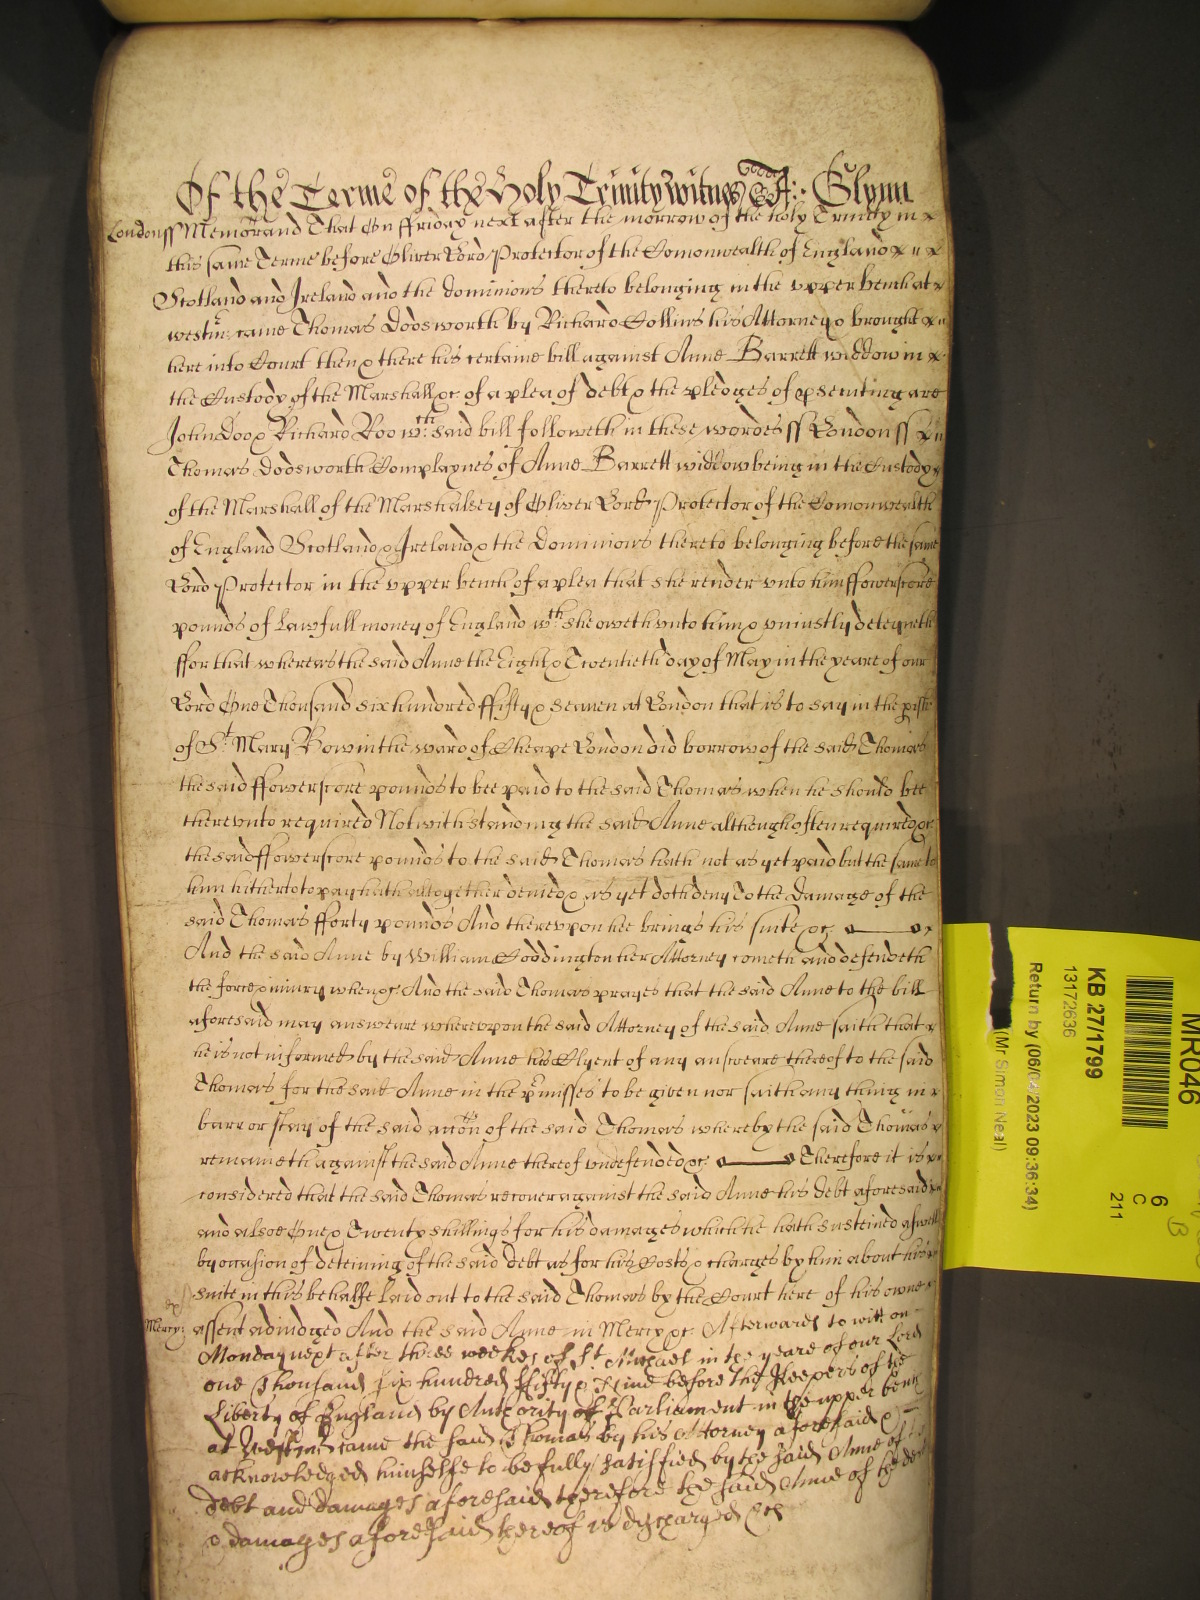 Of the Terme of the Holy Trinity witnes Glynn
London ss Memorand That On ffriday next after the morrow of the holy Trinity in
this same Terme before Oliver Lord Protector of the Comonwealth of England
Scotland and Ireland and the dominions thereto belonging in the upper bench at
westm: came Thomas Dodsworth by Richard Collins his Attorney & brought
here into Court then & there his certaine bill against Anne Barrett widdow in
the Custody of the Marshall &c of a plea of debt & the pledges of psecuting are
John Doo & Richard Roo wch: said bill followeth in these wordes ss London ss
Thomas Dodsworth Complaynes of Anne Barrett widdow being in the Custody
of the Marshall of the Marshalsey of Oliver Lord Protector of the Comonwealth
of England Scotland & Ireland & the Dominions thereto belonging before the same
Lord Protector in the upper bench of a plea that she render unto him ffowerscore
pounds of Lawfull money of England wch: she oweth unto him & uniustly deteyneth
ffor that whereas the said Anne the Eight & Twentieth day of May in the yeare of our
Lord One Thousand six hundred ffifty & seaven at London that is to say in the pish
of St. Mary Bow in the ward of Cheape London did borrow of the said Thomas
the said ffowerscore pounds to bee paid to the said Thomas when he should bee
thereunto required Notwithstanding the said Anne although often required &c
the said ffowerscore pounds to the said Thomas hath not as yet paid but the same to
him hitherto to pay hath altogether denied & as yet doth deny To the Damage of the
said Thomas fforty pounds And thereupon hee brings his suite &c
And the said Anne by William Coddington her Attorney cometh and defendeth
the force & iniury when &c And the said Thomas prayes that the said Anne to the bill
aforesaid may answeare whereupon the said Attorney of the said Anne saith that
he is not informed by the said Anne his Clyent of any answeare thereof to the said
Thomas for the said Anne in the pmisses to be given nor saith any thing in
barr or stay of the said accon of the said Thomas whereby the said Thomas
remaineth against the said Anne thereof undefended &c Therefore it is
considered that the said Thomas recover against the said Anne his debt aforesaid
and alsoe One & Twenty shillings for his damages which he hath susteined aswell
by occasion of deteining of the said debt as for his Costs & charges by him about his
suite in this behalfe laid out to the said Thomas by the Court here of his owne
Mercy: assent adiudged And the said Anne in Mercy &c Afterwards to witt on
Monday next after three weekes of St. Michael in the yeare of our Lord
one Thousand six hundred ffifty & Nine before the Keepers of the
Liberty of England by Authority of Parliament in the upper bench
at Westm came the said Thomas by his Attorney aforesaid &
acknowledged himselfe to be fully satisfied by the said Anne of the
debt and damages aforesaid therefore the said Anne of the debt
& damages aforesaid thereof is discharged &c
MR046
KB 27/1799
13172636
Return by (06/04/2023 09:36:34)
(Mr Simon Neal)
6
C
211
B